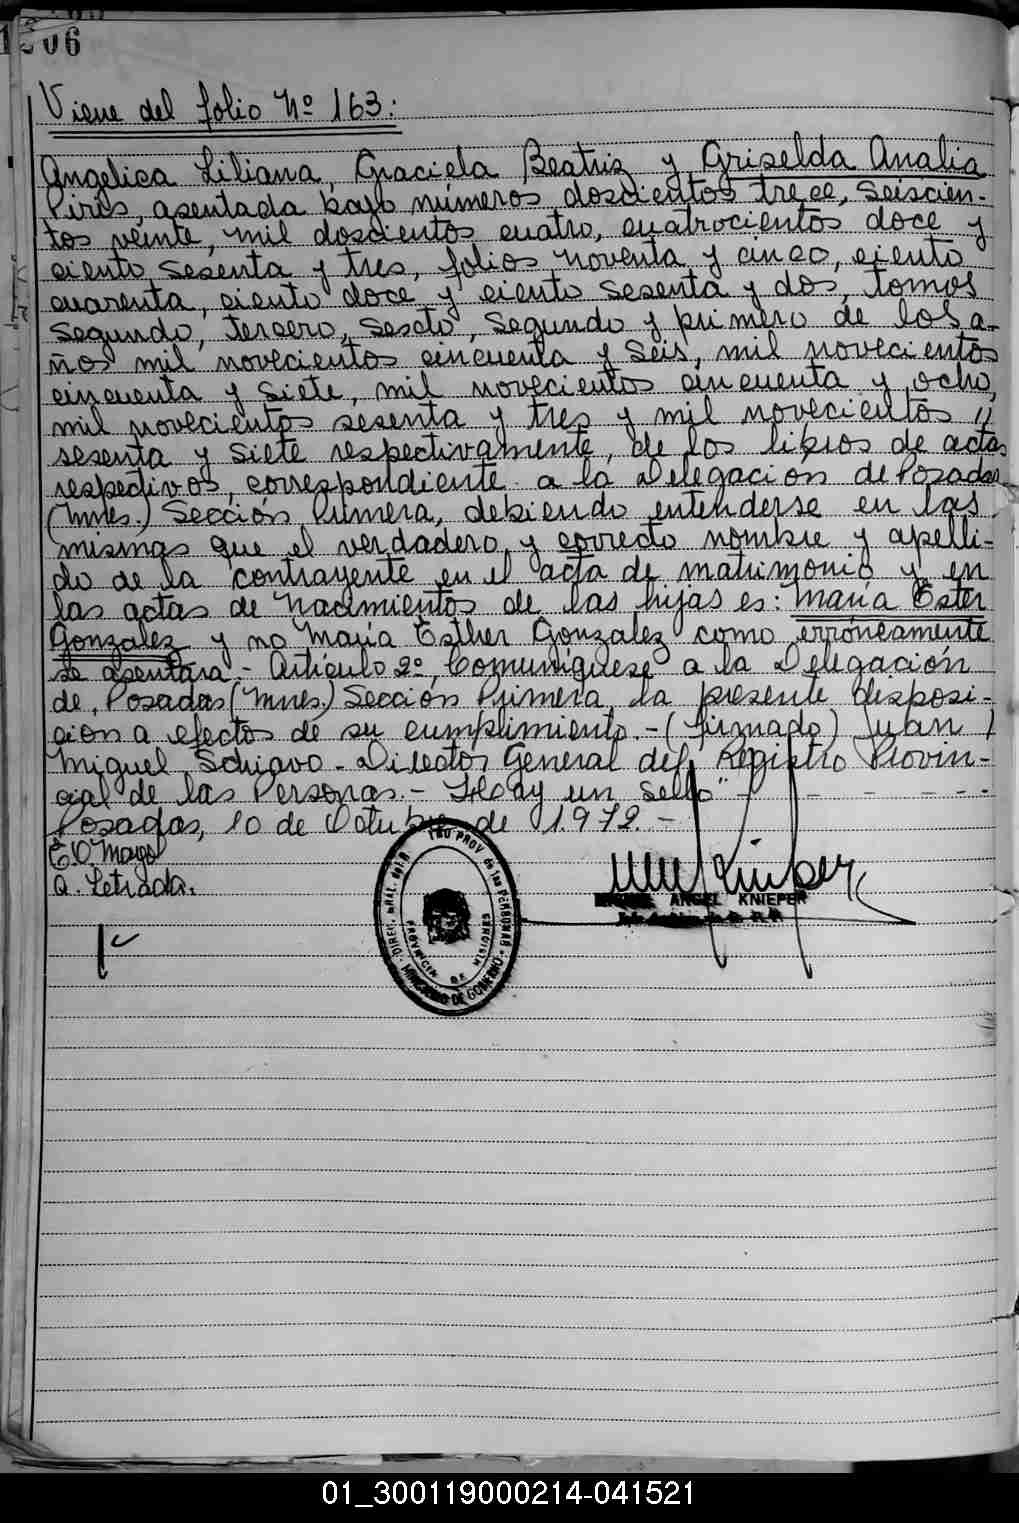 06
Viene del folio Nº 163:
Angelica Liliana, Graciela Beatriz y Griselda Analia
Pires, asentada bajo números doscientos trece, seiscien-
tos veinte, mil doscientos cuatro, cuatrocientos doce y
ciento sesenta y tres, folios noventa y cinco, ciento
cuarenta, ciento doce y ciento sesenta y dos, tomos
segundo, tercero, sexto, segundo y primero de los a-
ños mil novecientos cincuenta y seis, mil novecientos
cincuenta y siete, mil novecientos cincuenta y ocho,
mil novecientos sesenta y tres y mil novecientos //
sesenta y siete respectivamente, de los libros de actas
respectivos, correspondiente a la Delegacion de Posadas
(Mnes.) Sección Primera, debiendo entenderse en las
mismas que el verdadero y correcto nombre y apelli-
do de la contrayente en el acta de matrimonio y en
las actas de nacimientos de las hijas es: María Ester
Gonzalez y no María Esther Gonzalez como erróneamente
se asentara.- Articulo 2º, Comuníquese a la Delegación
de Posadas (Mnes.) Sección Primera la presente disposi-
cion a efectos de su cumplimiento.- (Firmado) Juan /
Miguel Schiavo - Director General del Registro Provin-
cial de las Personas.- Hay un sello" - - - - -
Posadas, 10 de Octubre de 1.972.-
E.O. Mayol
A. Letrada.
DIREC. GRAL. del R PROV de las PERSONAS
MINISTERIO DE GOBIERNO
PROVINCIA DE MISIONES
ANGEL KNIEPER
01_300119000214-041521